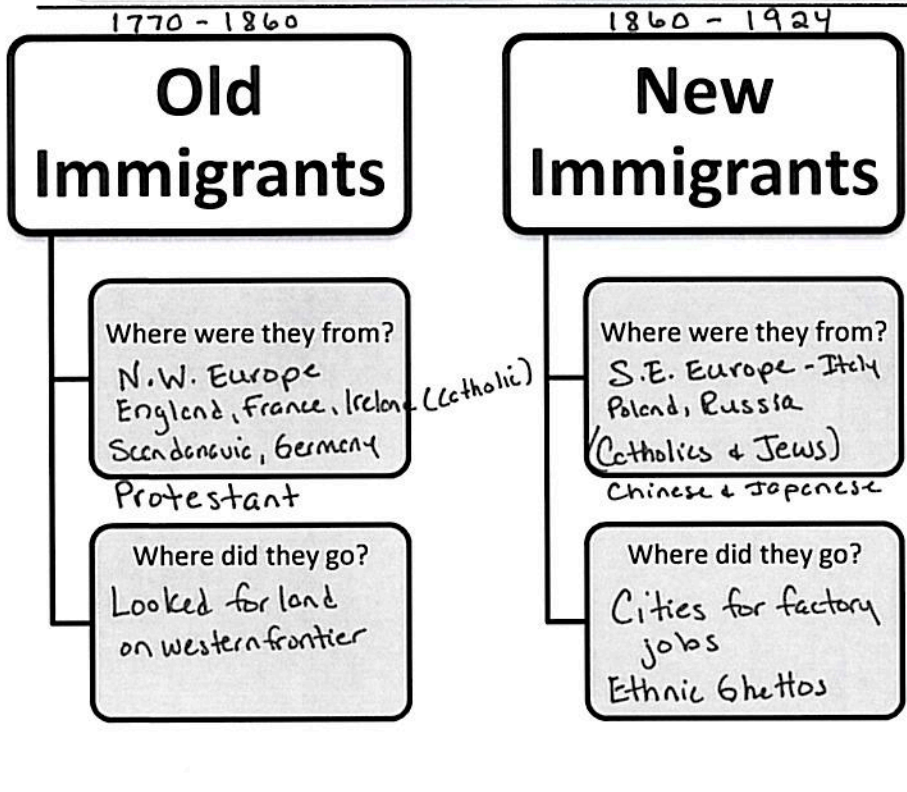 1770 - 1860
Old
Immigrants
Where were they from?
N.W. Europe
England, France, Ireland (Catholic)
Scandanavia, Germany
Protestant
Where did they go?
Looked for land
on western frontier
1860 - 1924
New
Immigrants
Where were they from?
S.E. Europe - Italy
Poland, Russia
(Catholics & Jews)
Chinese & Japanese
Where did they go?
Cities for factory
jobs
Ethnic Ghettos